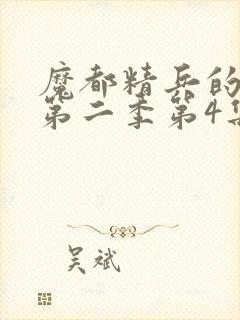 魔都精兵的
第二季第4集
吴斌